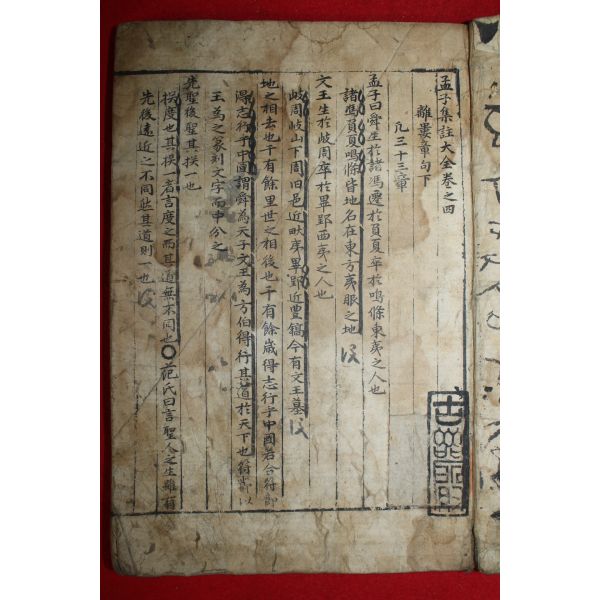 孟子集註大全卷之四
離婁章句下
凡三十三章
孟子曰舜生於諸馮遷於負夏卒於鳴條東夷之人也
諸馮負夏鳴條皆地名在東方夷服之地
文王生於岐周卒於畢郢西夷之人也
岐周岐山下周旧邑近畎夷畢郢近豊鎬今有文王墓
地之相去也千有餘里世之相後也千有餘歲得志行乎中國若合符節
得志行乎中国謂舜為天子文王為方伯得行其道於天下也符節以
玉為之篆刻文字而中分之
先聖後聖其揆一也
揆度也其揆一者言度之而其道無不同也○范氏曰言聖人之生雖有
先後遠近之不同然其道則一也